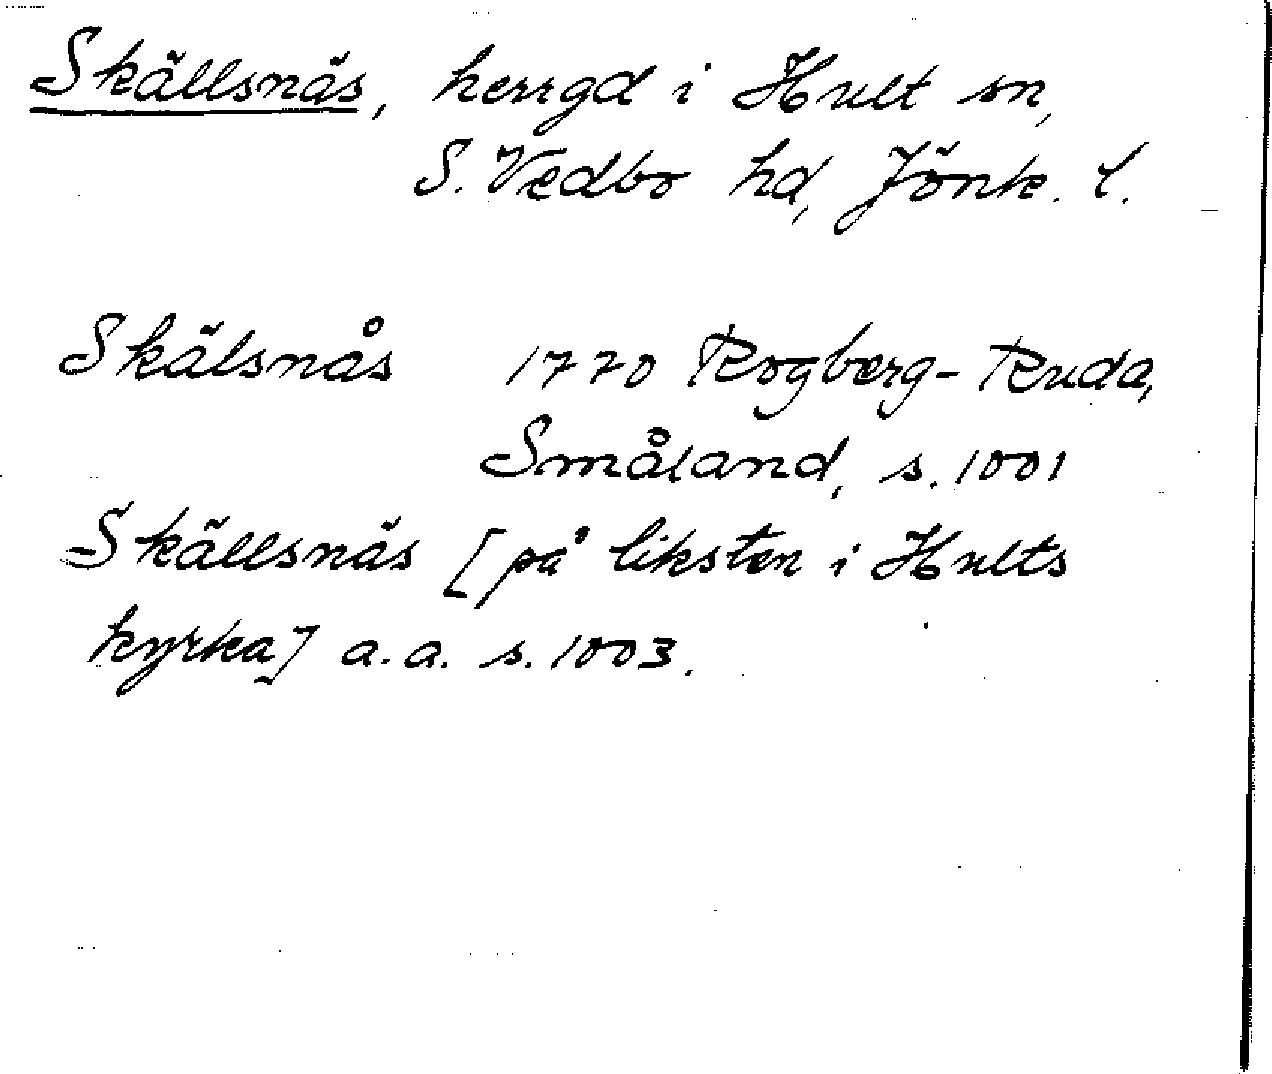 Skällsnäs, herrgd i Hult sn,
S. Vedbo hd, Jönk. l.
Skälsnås 1770 Rogberg-Ruda,
Småland, s. 1001
Skällsnäs [på liksten i Hults
kyrka] a.a. s. 1003.